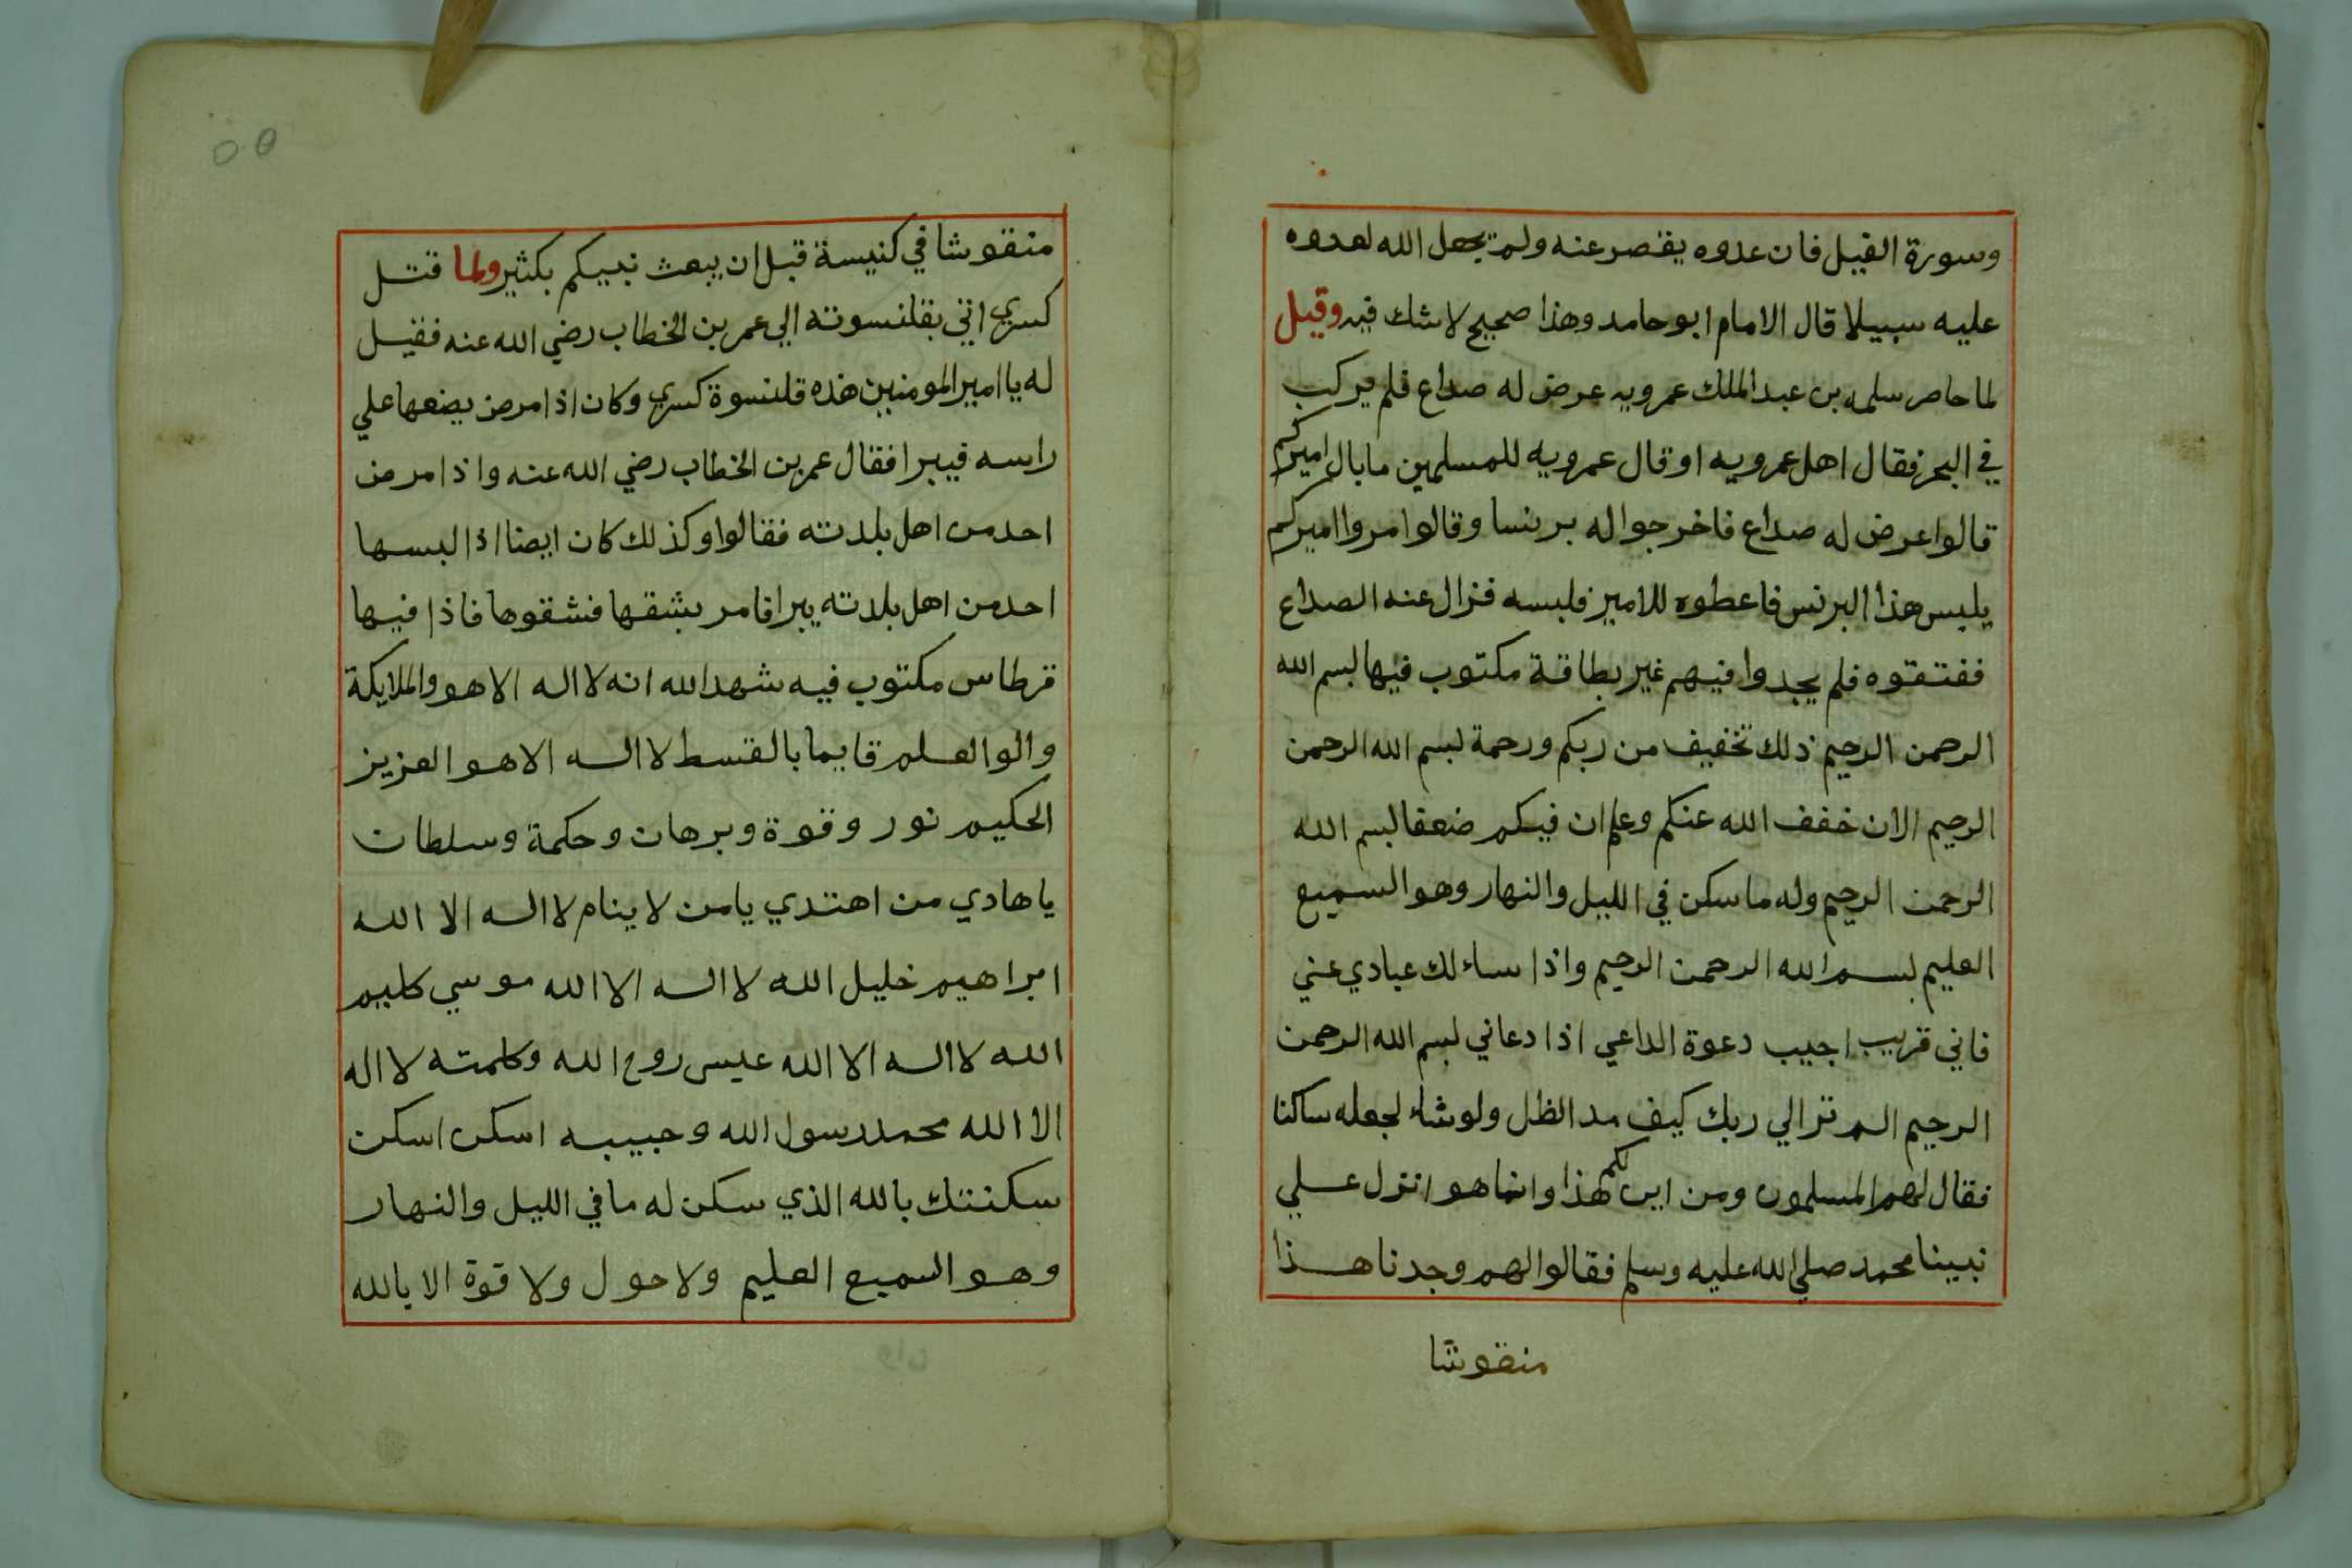 وسورة الفيل فان عدوه يقصر عنه ولم يجعل الله لعدوه
عليه سبيلا قال الامام ابو حامد وهذا صحيح لا شك فيه وقيل
لما حاصر سلمه بن عبد الملك عمرويه عرض له صداع فلم يركب
في البحر فقال اهل عمرويه او قال عمرويه للمسلمين ما بال اميركم
قالوا عرض له صداع فاخرجوا له برنسا وقالوا امروا اميركم
يلبس هذا البرنس فاعطوه للامير فلبسه فزال عنه الصداع
ففتقوه فلم يجدوا فيهم غير بطاقة مكتوب فيها بسم الله
الرحمن الرحيم ذلك تخفيف من ربكم ورحمة بسم الله الرحمن
الرحيم الان خفف الله عنكم وعلم ان فيكم ضعفا بسم الله
الرحمن الرحيم وله ما سكن في الليل والنهار وهو السميع
العليم بسم الله الرحمن الرحيم واذا ساءلك عبادي عني
فاني قريب اجيب دعوة الداعي اذا دعاني بسم الله الرحمن
الرحيم الم تر الي ربك كيف مد الظل ولو شاء لجعله ساكنا
فقال لهم المسلمون ومن اين لكم هذا وانما هو انزل علي
نبينا محمد صلي الله عليه وسلم فقالوا لهم وجدنا هذا
منقوشا
منقوشا في كنيسة قبل ان يبعث نبيكم بكثير ولما قتل
كسري اتي بقلنسوته الي عمر بن الخطاب رضي الله عنه فقيل
له يا امير المومنين هذه قلنسوة كسري وكان اذا مرض يضعها علي
راسه فيبرا فقال عمر بن الخطاب رضي الله عنه واذا مرض
احد من اهل بلدته فقالوا وكذلك كان ايضا اذا لبسها
احد من اهل بلدته يبرا فامر بشقها فشقوها فاذا فيها
قرطاس مكتوب فيه شهد الله انه لا اله الا هو والملايكة
والوا العلم قايما بالقسط لا اله الا هو العزيز
الحكيم نور وقوة وبرهان وحكمة وسلطان
يا هادي من اهتدي يا من لا ينام لا اله الا الله
ابراهيم خليل الله لا اله الا الله موسي كليم
الله لا اله الا الله عيسي روح الله وكلمته لا اله
الا الله محمد رسول الله وحبيبه اسكن اسكن
سكنتك بالله الذي سكن له ما في الليل والنهار
وهو السميع العليم ولا حول ولا قوة الا بالله